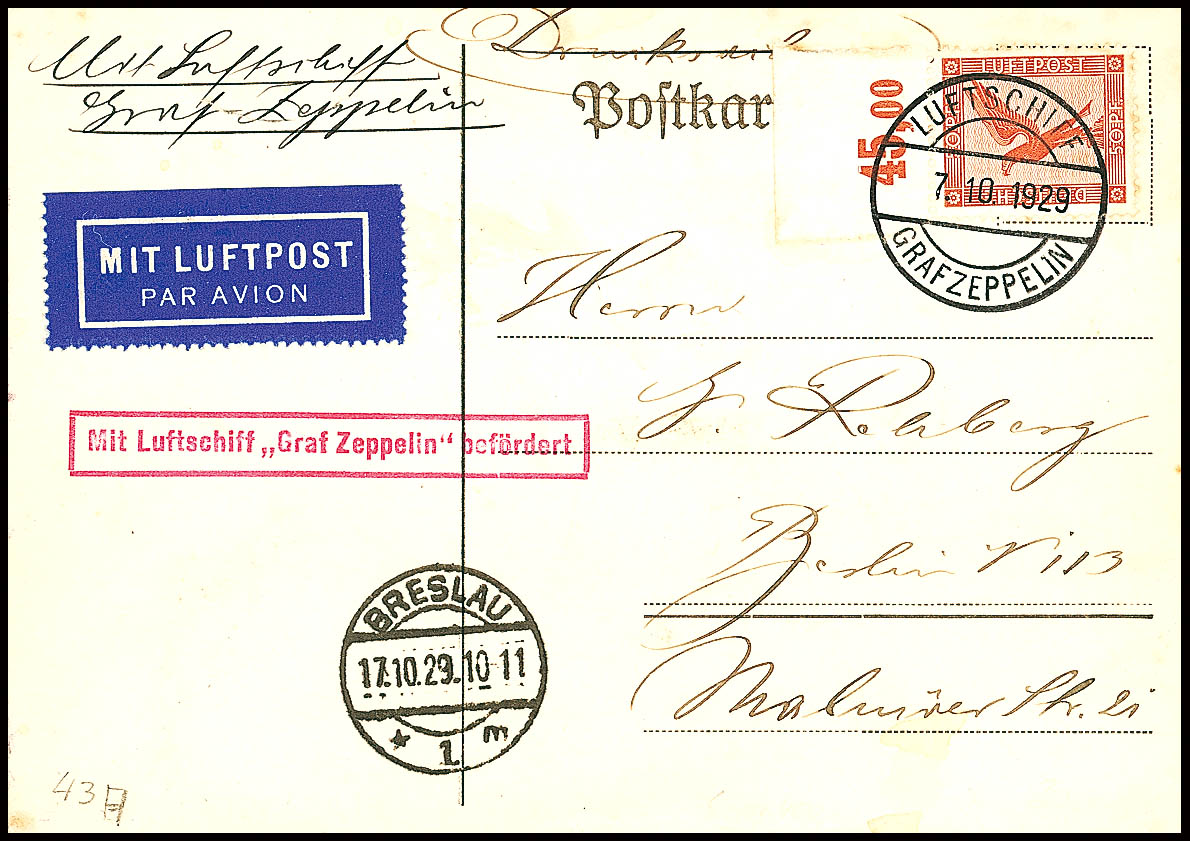 Mit Luftschiff
Graf Zeppelin
Drucksache
Postkar
45,00
LUFTPOST
50 PF
50 PF
LUFTSCHIFF
7. 10. 1929
GRAF ZEPPELIN
MIT LUFTPOST
PAR AVION
Herrn
Rehberg
Berlin N 113
Malmöer Str. 21
Mit Luftschiff „Graf Zeppelin“ befördert
BRESLAU
17.10.29.10-11
* 1 m
43